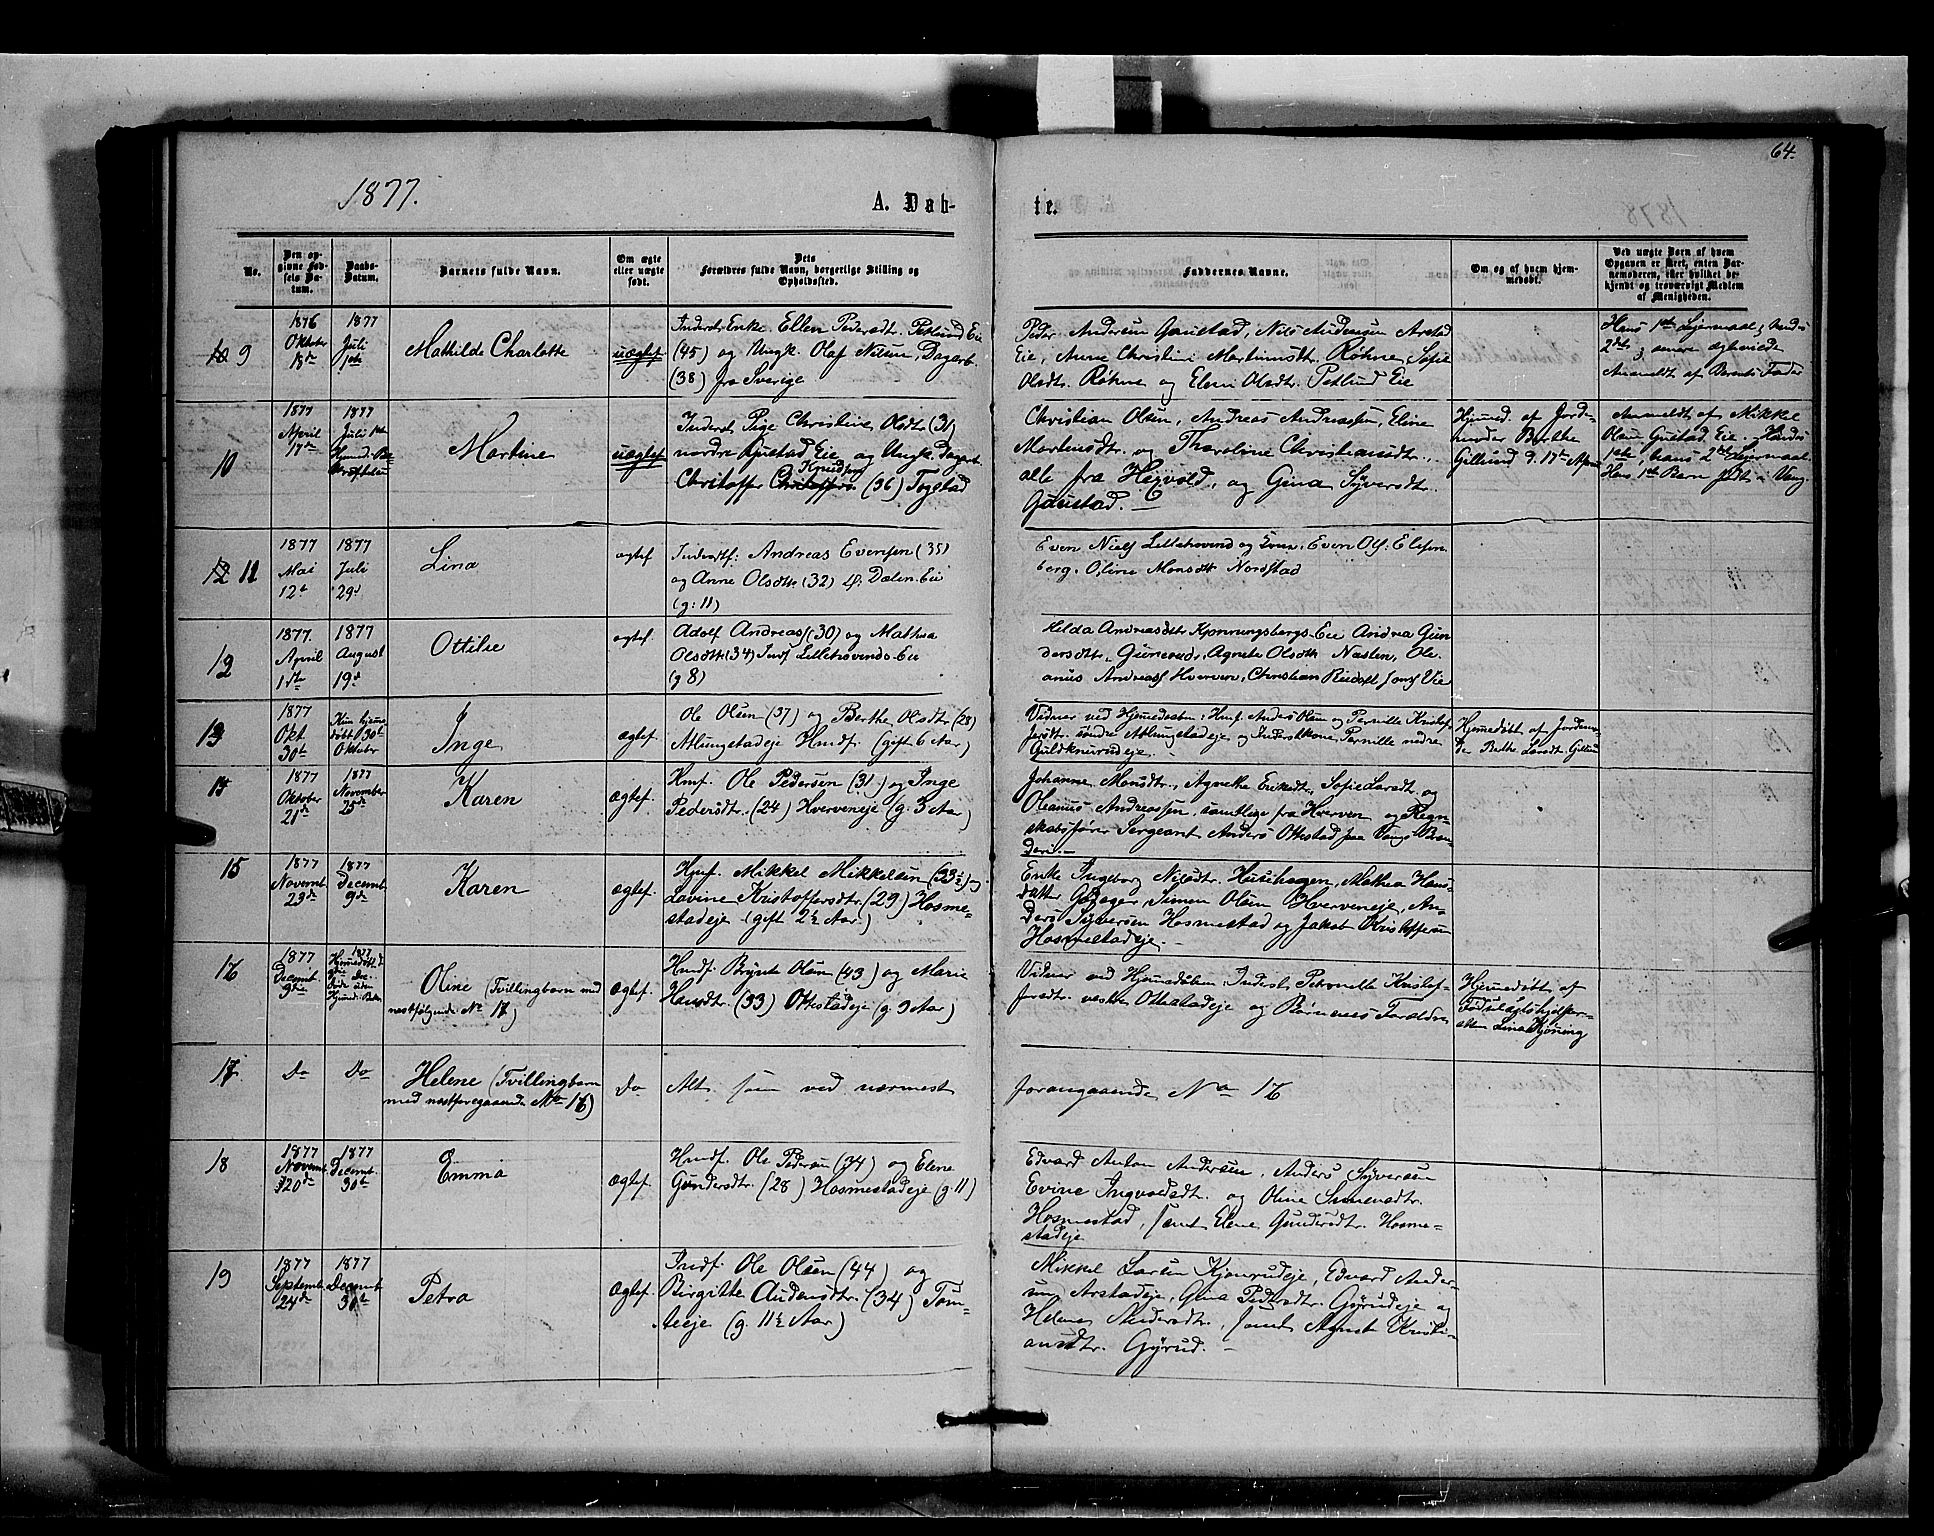 64.
1877.
A. Døb-
te.
No.
Den op-
givne Fød-
sels Da-
tum.
Daabs-
Datum.
Barnets fulde Navn.
Om ægte
eller uægte
født.
Dets
Forældres fulde Navn, borgerlige Stilling og
Opholdssted.
Faddernes Navne.
Om og af hvem hjem-
medøbt.
Ved uægte Børn af hvem
Opgaven er skeet, enten Bar-
nemoderen, eller hvilket be-
kjendt og troværdigt Medlem
af Menigheden.
9
1876
Oktober
18de
1877
Juli
1ste
Mathilde Charlotte
uægtef
Inderst Enke Ellen Pedersdtr. Petlund Eie
(45) og Ungk. Olaf Nilsen, Dagarb.
(38) fra Sverige
Peder Andersen Gaustad, Nils Andersen Arstad
Eie, Anne Christine Martinusdtr. Røhne, Sofie
Olsdtr. Røhne og Eleni Olsdtr. Petlund Eie
Hans 1ste Leiermaal, hendes
2det; senere ægteviede
Anmeldt af Barnets Fader
10
1877
April
17de
1877
Juli 1ste
Hjemd. Be-
kræftelsen
Martine
uægtef
Inderst Pige Christine Olsdtr (31)
nordre Gustad Eie og Ungk. Dagarb.
Christoffer Knudsen (36) Togstad
Christian Olsen, Andreas Andreassen, Eline
Martinusdtr. og Thoroline Christiansdtr.,
alle fra Hegvold, og Gina Syversdtr.
Gaustad.
Hjemmed. af Jorde-
moder Berthe
Gillund d. 17de April
Anmeldt af Mikkel
Olsen Gustad Eie. Hendes
1ste, hans 2det Leiermaal.
Hans 1ste Barn født i Vang.
11
1877
Mai
12te
1877
Juli
29d
Lina
ægtef
Inderstf: Andreas Evensen (35)
og Anne Olsdtt (32) Dælin Eie
(g: 11)
Even Niels Lillehovend og Kone, Even Ols: Elsen
berg. Oline Monsdtt Nordstad
12
1877.
April
1ste
1877
August
19d
Ottilie
ægtef.
Adolf Andreass (30) og Mathea
Olsdtt (34) Indf Lillehovends Eie
(g 8)
Hilda Andreasdtr Kjonnungsbergs Eie Andrea Gun
dersdtr. Gunerud, Agnete Olsdtt Næslen, Ole-
anus Andreass Hverven, Christian
13
1877
Okt.
30te
Kun hjemme-
døbt 30te
Oktober
Inge
ægtef.
Ole Olsen (37) og Berthe Olsdtr (28)
Atlungstadeje Hmdf. (gift 6 Aar)
Vidner ved Hjemmedaaben: Hmf. Anders Olsen og Pernille Kristof-
fersdtr. søndre Atlungstadeje og Inderstkone Pernille nedre
Guldknurudeje.
Hjemmedøbt af Jordemo-
der Berthe Larsdt. Gillund
14
1877
Oktober
21de
1877
November
25de
Karen
Ægtef.
Hmf. Ole Pedersen (31) og Inge
Pedersdtr. (24) Hverveneje (g. 3 Aar)
Johanne Monsdtr., Agnethe Eriksdt., Sofie Larsdt. og
Oleanus Andreassen, samtlige fra Hverven og Regn-
skabsfører Sergeant Anders Ottestad paa Vangs Bræn-
deri.
15
1877
Novemb
29de
1877
Decemb
9de
Karen
ægtef.
Hmf. Mikkel Mikkelsen (33½) og
Lovine Kristoffersdtr. (29) Hosme-
stadeje (gift 2½ Aar)
Enke Ingeborg Nilsdtr. Husehagen, Mathea Hans-
datter Gøtager, Simen Olsen Hverveneje, An-
ders Syversen Hosmestad og Jakob Kristoffersen
Hosmestadeje.
16
1877
Decemb.
9de
1877
Hjemmedøbt d.
9de Dec.
Døde uden
Hjemd. Bekr.
Oline (Tvillingbarn med
nestfølgende No 17)
Ægtef.
Hmdf. Brynte Olsen (43) og Marie
Hansdtr. (33) Ottestadeje (g. 9 Aar)
Vidner ved Hjemmedaaben Inderst Petronelle Kristof-
fersdtr. vestre Ottestadeje og Børnenes Forældre
Hjemmedøbt af
Fødselshjælper-
sken Lina Kjøning
17
Do
Do
Helene (Tvillingbarn
med nestforegaaende No 16)
Do
Alt som ved nærmest
foranstaaende No 16
18
1877
Novemb.
20de
1877
Decemb.
30te
Emma
Ægtef.
Hmdf. Ole Pedersen (34) og Elene
Gundersdtr. (28) Hosmestadeje (g. 11)
Edvard Anton Andersen, Anders Syversen
Evine Ingvoldsdt. og Oline Simensdtr.
Hosmestad, samt Elene Gundersdtr. Hosme-
stadeje
19
1877
Septemb.
24de
1877
Decemb
30te
Petra
Ægtef.
Indf. Ole Olsen (44) og
Birgitte Andersdtr. (34) Tom-
teeje (g. 11½ Aar)
Mikkel Larsen Kjonrudeje, Edvard Ander-
sen, Arstadeje, Gina Pedersdtr. Gyrudeje og
Helene Andersdtr., samt Agnete Kristi-
ansdtr. Gyrud.